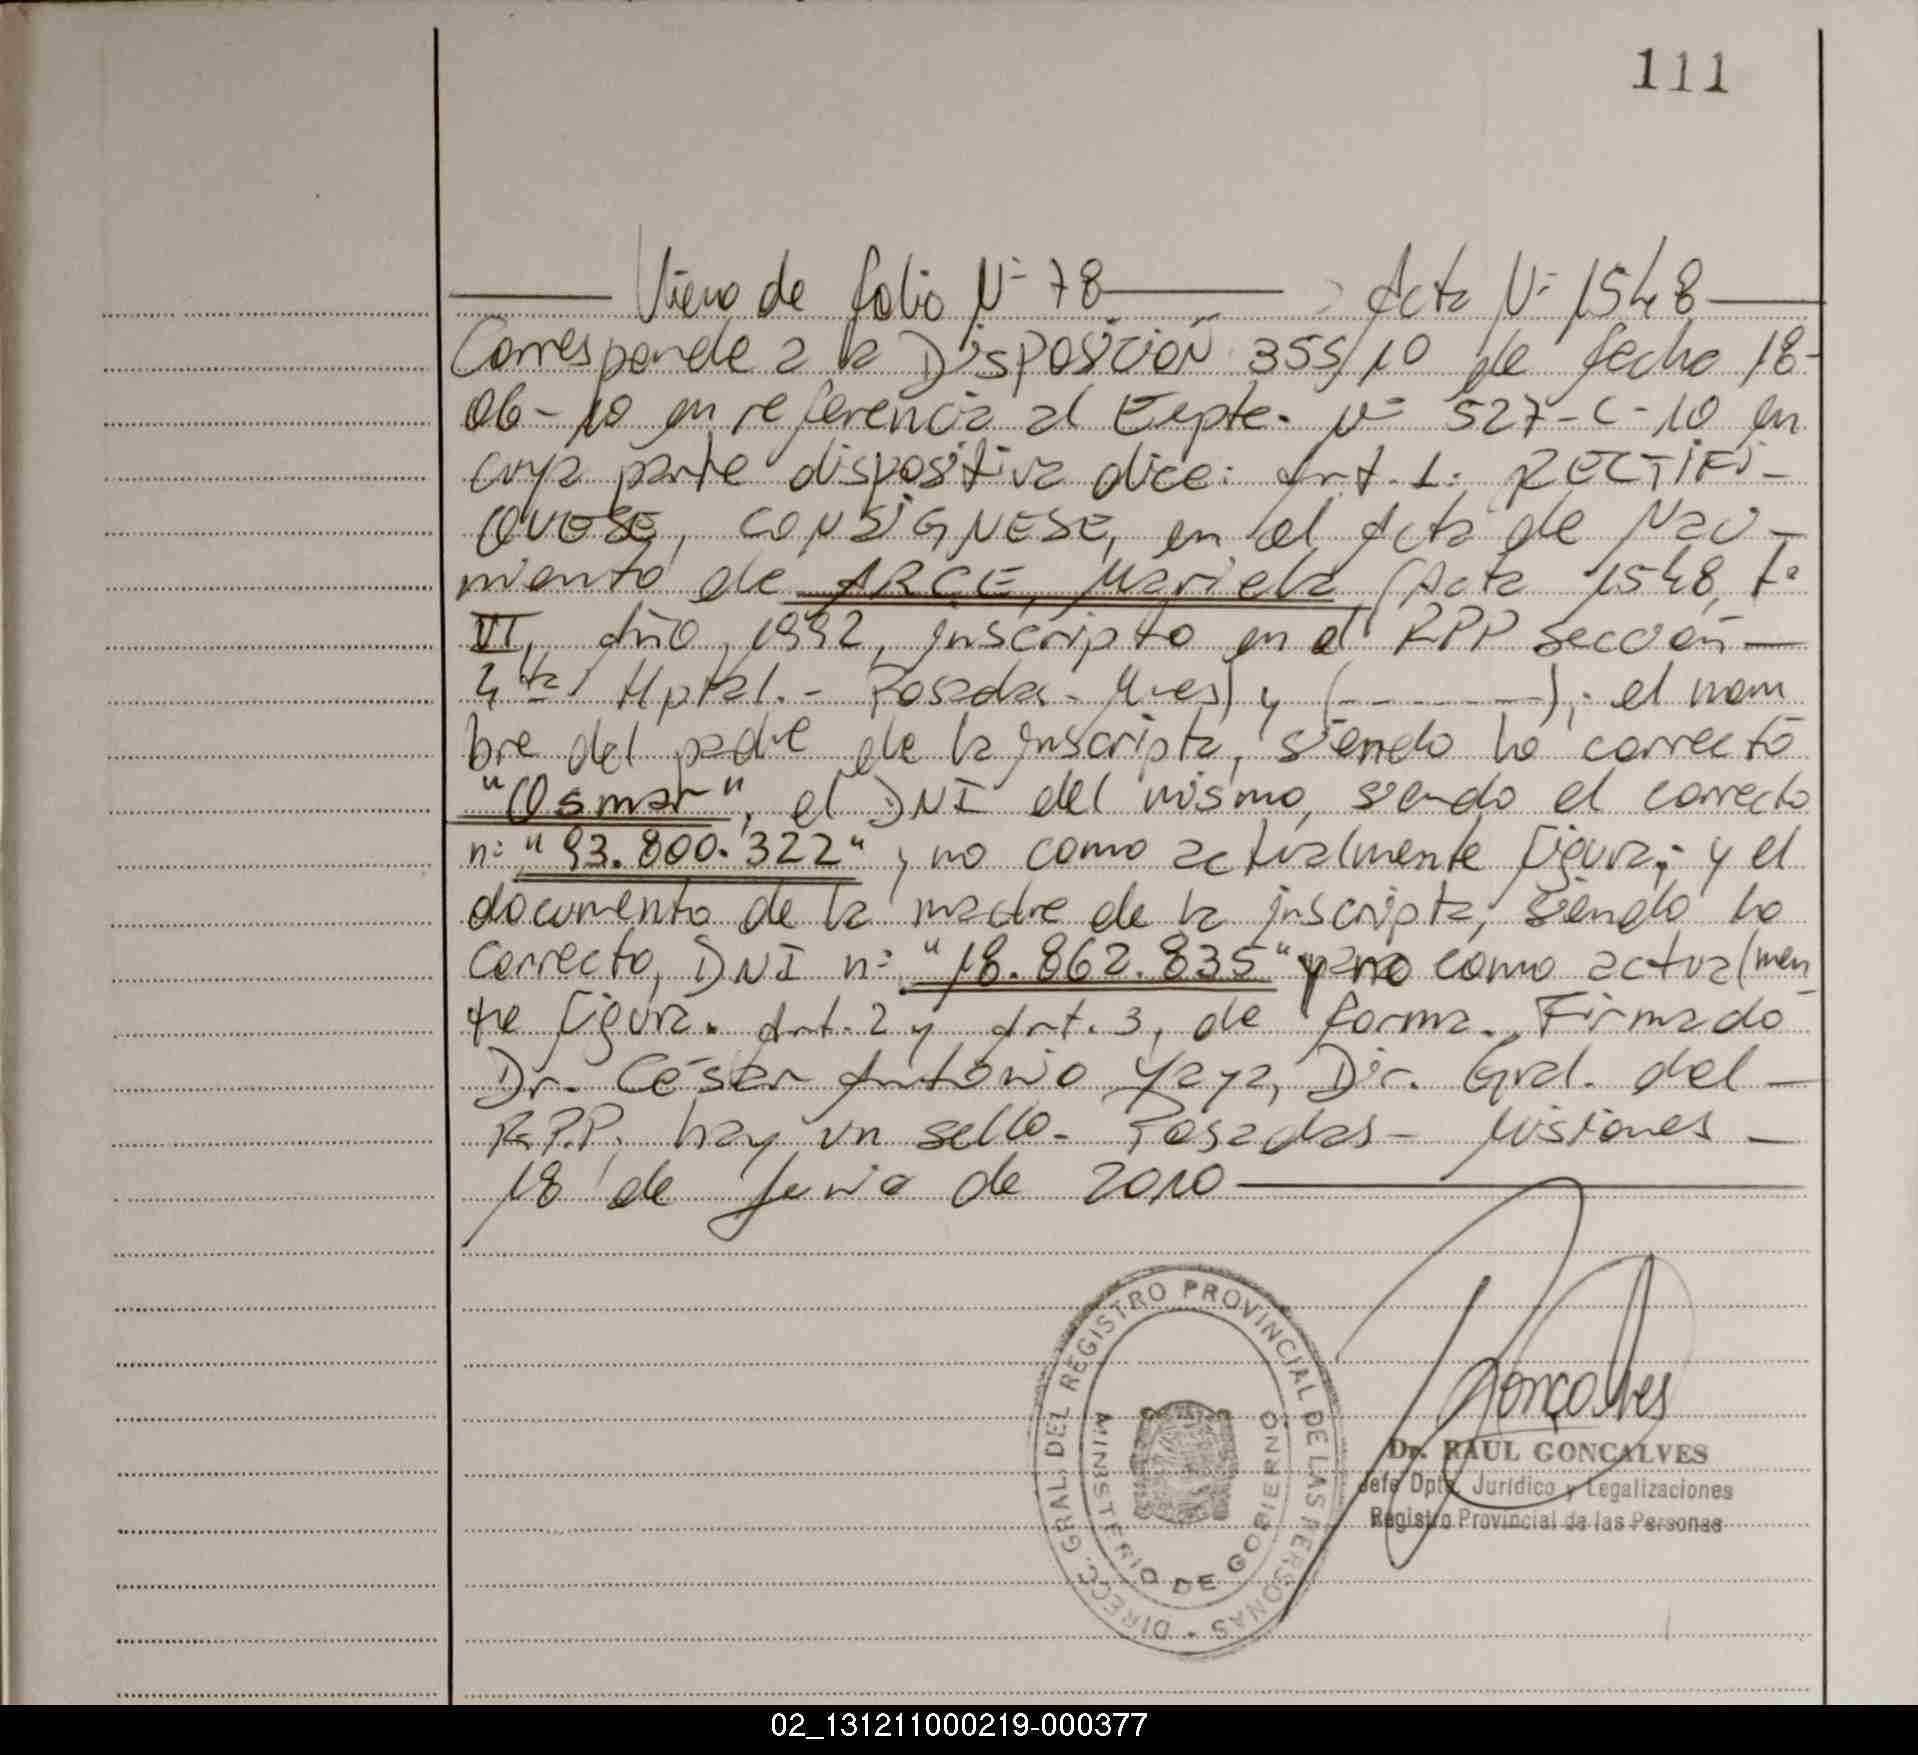 111
Viene de folio Nº 78 Acta Nº 1548
Corresponde a la DISPOSICIÓN 355/10 de fecha 18-
06-10 en referencia al Expte. Nº 527-C-10 en
cuya parte dispositiva dice: Art. 1: RECTIFI-
QUESE, CONSIGNESE, en el Acta de Naci-
miento de ARCE, Mariela (Acta 1548, Tº
VI, Año 1992, inscripto en el RPP sección
4ta Hptal. - Posadas - Mnes) y (- - - - - - -); el nom
bre del padre de la inscripta, siendo lo correcto
"Osmar", el DNI del mismo, siendo el correcto
nº "93.800.322", no como actualmente figura; y el
documento de la madre de la inscripta, siendo lo
correcto, DNI nº "18.862.835" y no como actualmen
te figura. Art. 2 y Art. 3, de forma. Firmado
Dr. César Antonio Yaya, Dir. Gral. del
R.P.P. hay un sello - Posadas - Misiones -
18 de Junio de 2010
DIRECC. GRAL. DEL REGISTRO PROVINCIAL DE LAS PERSONAS
MINISTERIO DE GOBIERNO
Goncalves
Dr. RAUL GONCALVES
Jefe Dpto. Jurídico y Legalizaciones
Registro Provincial de las Personas
02_131211000219-000377